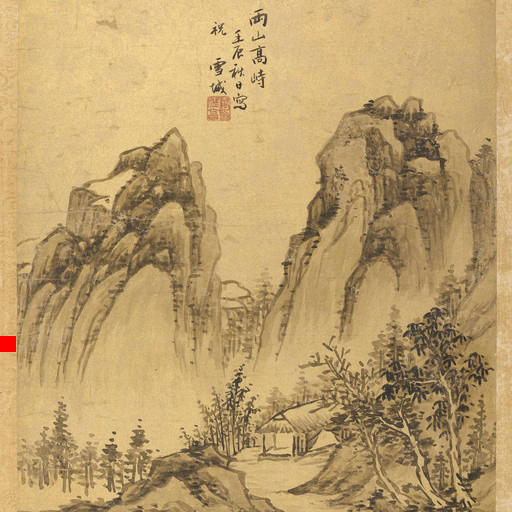 両山高峙
壬辰秋日寫
祝雪城